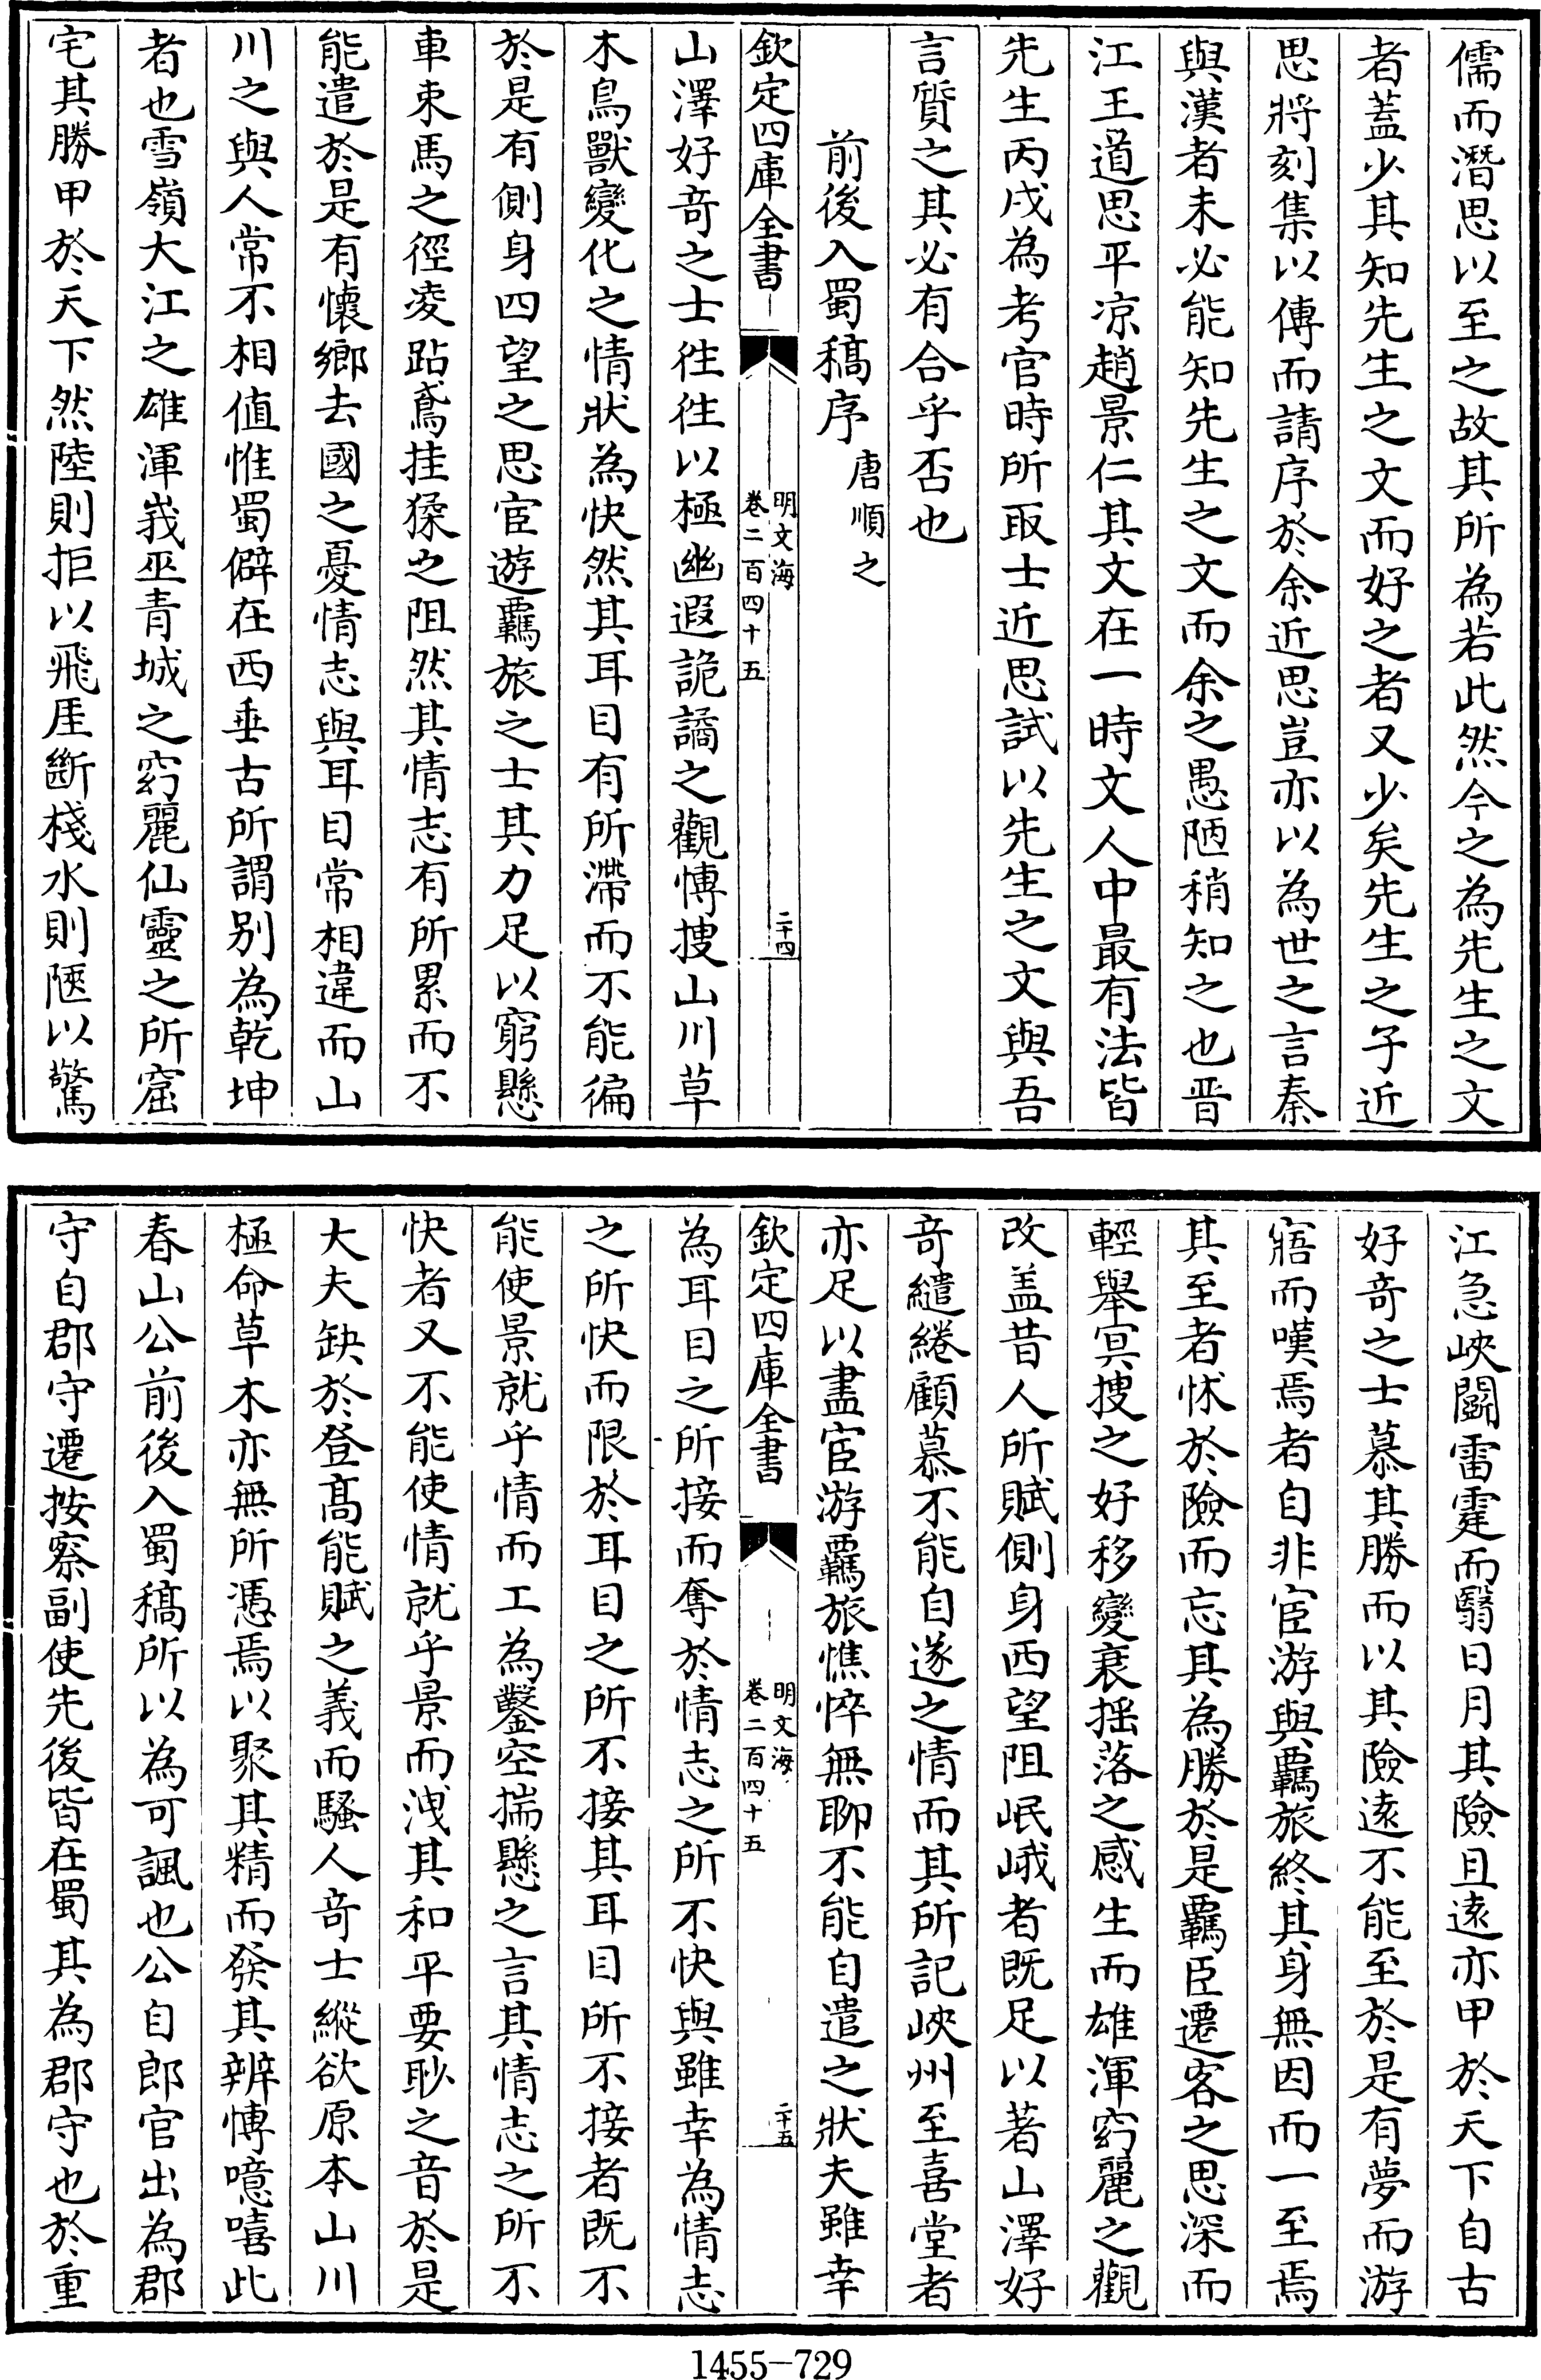 儒而潛思以至之故其所為若此然今之為先生之文
者蓋少其知先生之文而好之者又少矣先生之子近
思將刻集以傳而請序於余近思豈亦以為世之言秦
與漢者未必能知先生之文而余之愚陋稍知之也晋
江王道思平凉趙景仁其文在一時文人中最有法皆
先生丙戌為考官時所取士近思試以先生之文與吾
言質之其必有合乎否也
前後入蜀稿序 唐順之
欽定四庫全書 明文海 卷二百四十五 二十四
山澤好奇之士徃徃以極幽遐詭譎之觀愽搜山川草
木鳥獸變化之情狀為快然其耳目有所滯而不能徧
於是有側身四望之思宦遊覊旅之士其力足以窮懸
車束馬之徑凌跕鳶挂猱之阻然其情志有所累而不
能遣於是有懷鄉去國之憂情志與耳目常相違而山
川之與人常不相值惟蜀僻在西垂古所謂別為乾坤
者也雪嶺大江之雄渾峩巫青城之窈麗仙靈之所窟
宅其勝甲於天下然陸則拒以飛厓斷棧水則陿以驚
江急峽闘雷霆而翳日月其險且遠亦甲於天下自古
好奇之士慕其勝而以其險遠不能至於是有夢而游
寤而嘆焉者自非宦游與覊旅終其身無因而一至焉
其至者怵於險而忘其為勝於是覊臣遷客之思深而
輕舉冥搜之好移變衰揺落之感生而雄渾窈麗之觀
改盖昔人所賦側身西望阻岷峨者既足以著山澤好
奇繾綣顧慕不能自遂之情而其所記峽州至喜堂者
亦足以盡宦游覊旅憔悴無聊不能自遣之狀夫雖幸
欽定四庫全書 明文海 卷二百四十五 二十五
為耳目之所接而奪於情志之所不快與雖幸為情志
之所快而限於耳目之所不接其耳目所不接者既不
能使景就乎情而工為鑿空揣懸之言其情志之所不
快者又不能使情就乎景而洩其和平要眇之音於是
大夫缺於登髙能賦之義而騷人奇士縱欲原本山川
極命草木亦無所憑焉以聚其精而發其辨愽噫嘻此
春山公前後入蜀稿所以為可諷也公自郎官出為郡
守自郡守遷按察副使先後皆在蜀其為郡守也於重
1455-729